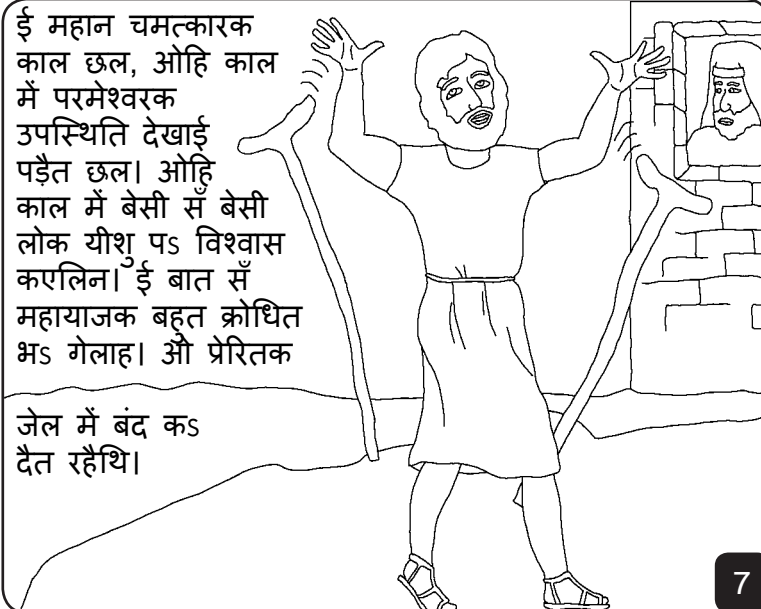 ई महान चमत्कारक
काल छल, ओहि काल
में परमेश्वरक
उपस्थिति देखाई
पड़ैत छल। ओहि
काल में बेसी सँ बेसी
लोक यीशु पऽ विश्वास
कएलिन। ई बात सँ
महायाजक बहुत क्रोधित
भऽ गेलाह। ओ प्रेरितक
जेल में बंद कऽ
दैत रहैथि।
7